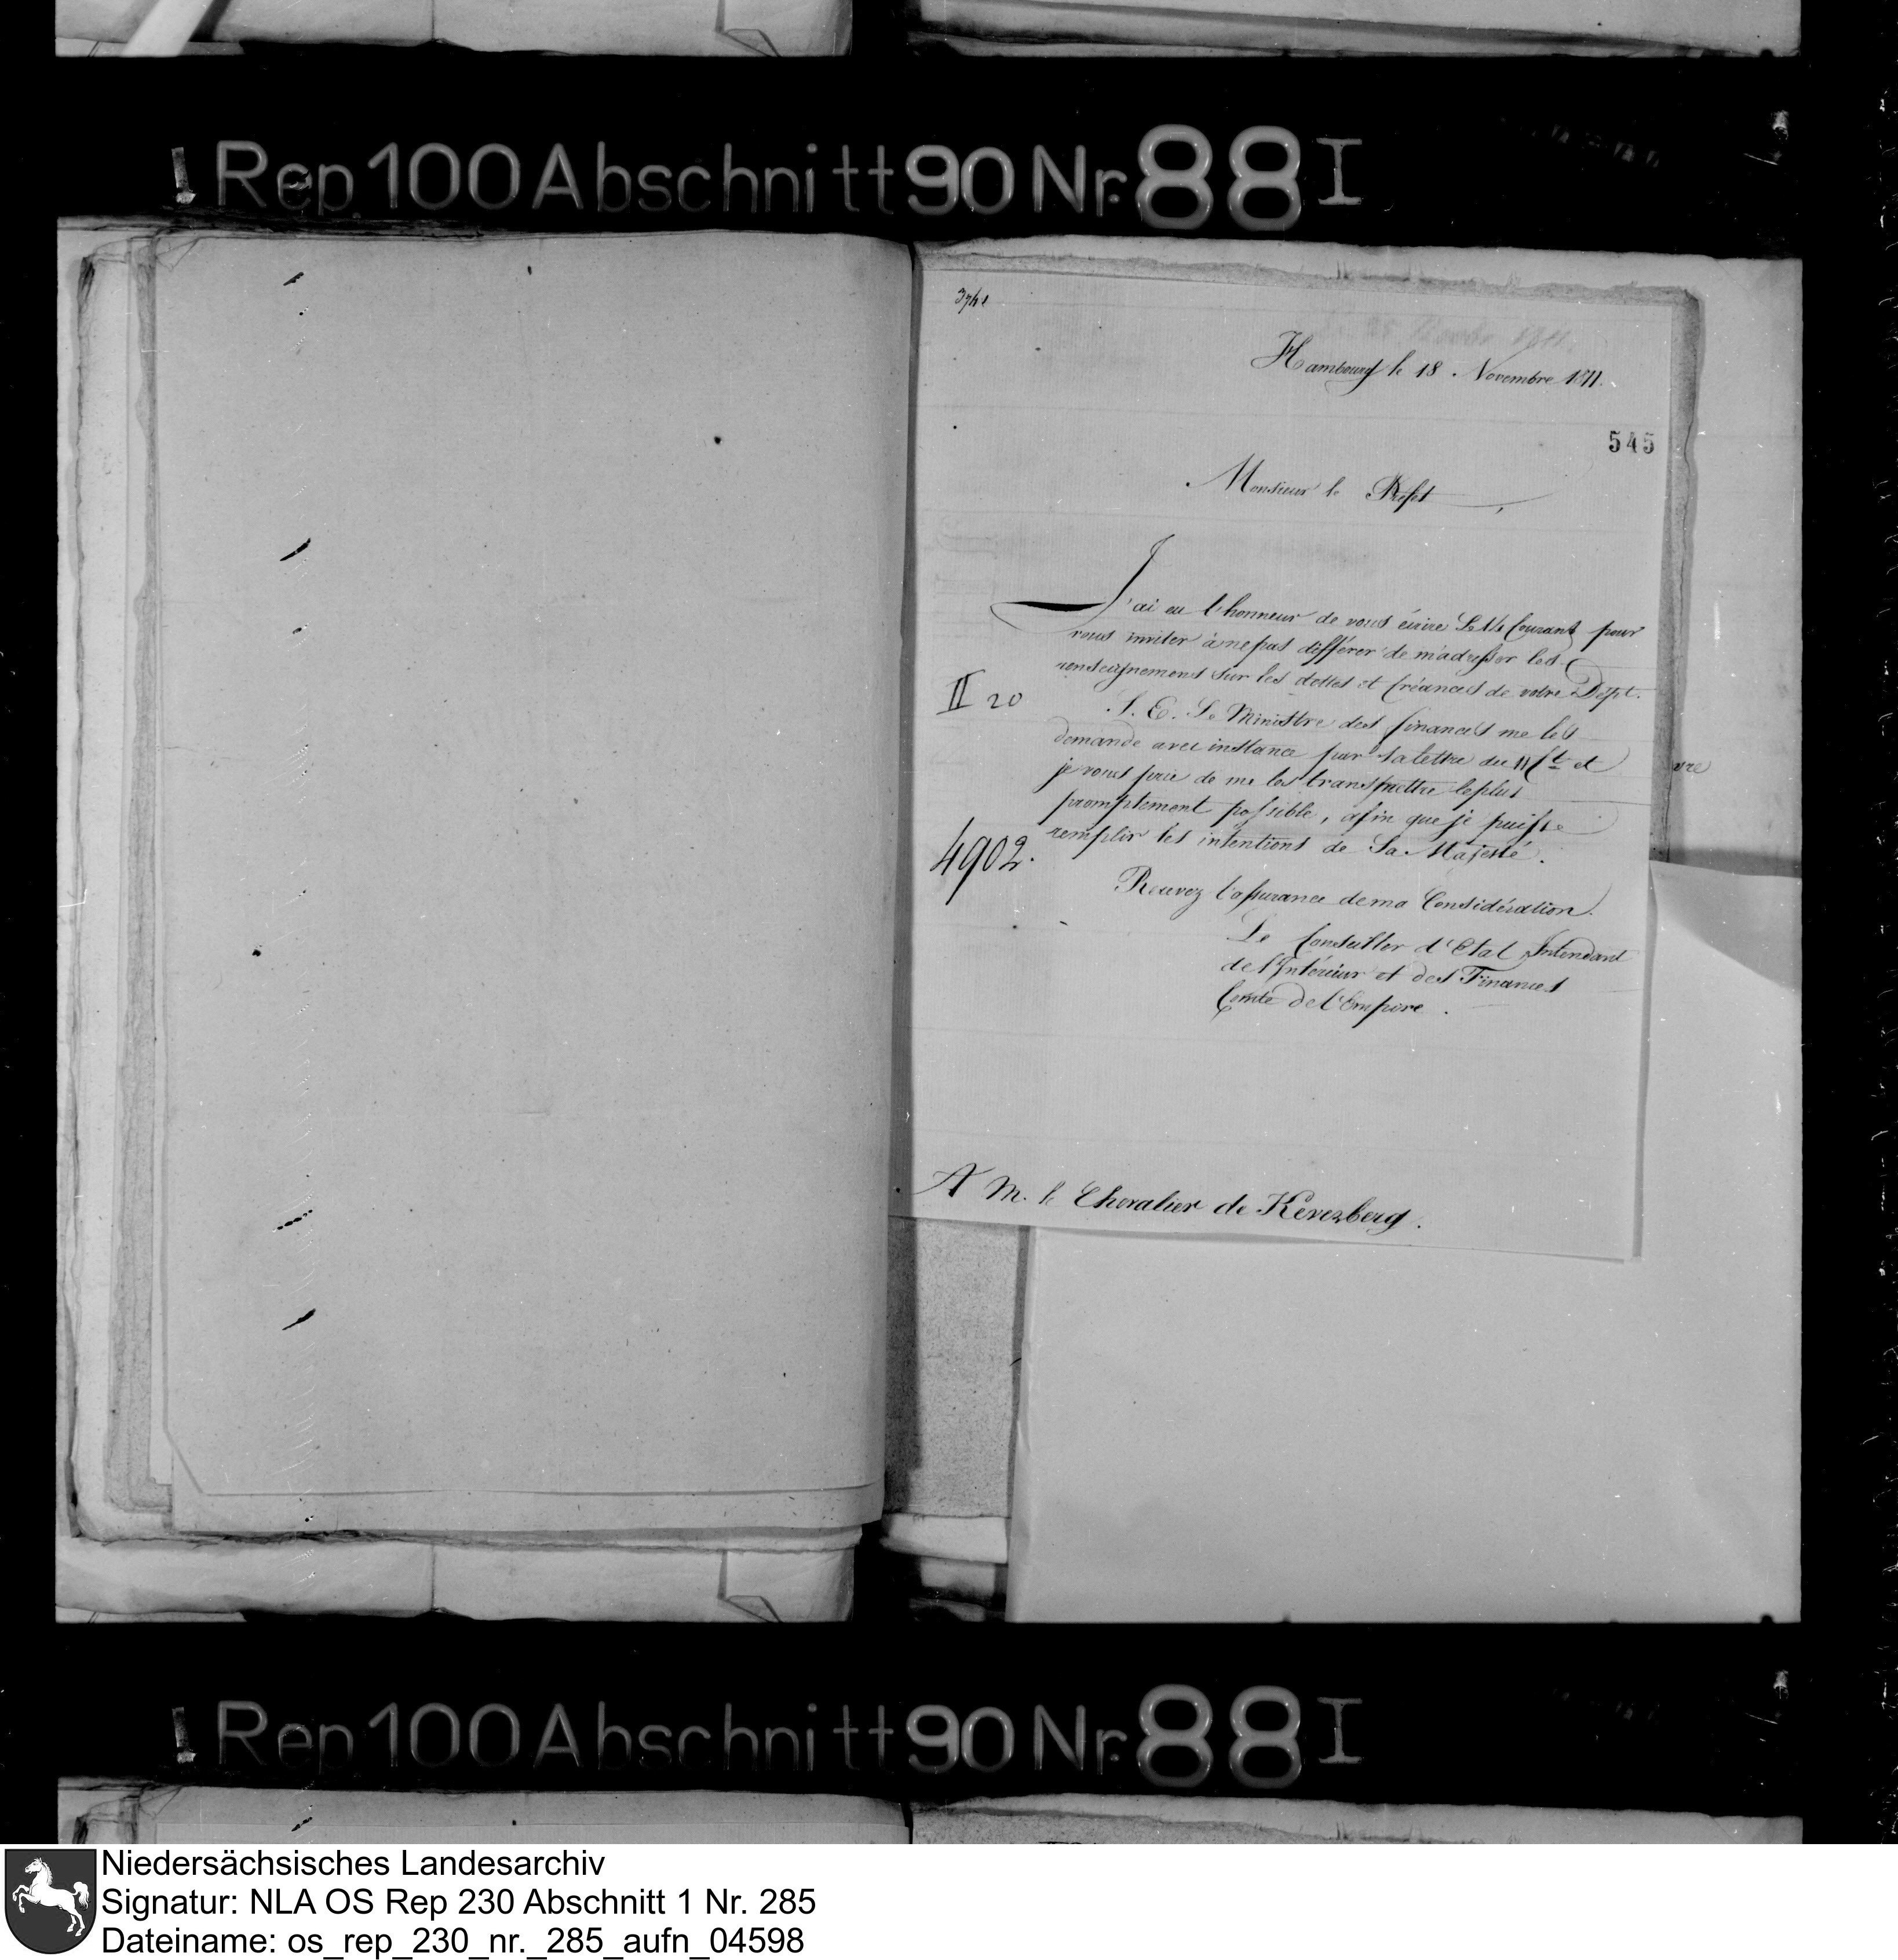 Rep 100 Abschnitt 90 Nr. 88 I
Hambourg le 18. Novembre 1811.
545
Monsieur le Préfet,
J'ai eu l'honneur de vous écrire Le 14 Courant pour
vous inviter à ne pas différer de m'adresser les
renseignemens sur les dettes et Créances de votre Dépt.
II 20
S. E. Le Ministre des finances me les
demande avec instance par sa lettre du 11 Ct et
je vous prie de me les transmettre le plus
vre
promptement possible, afin que je puisse
remplir les intentions de Sa Majesté.
4902.
Recevez l'assurance de ma Considération.
Le Conseiller d'Etat Intendant
de l'Intérieur et des Finances
Comte de l'Empire.
A M. le Chevalier de Keverberg.
Rep 100 Abschnitt 90 Nr. 88 I
Niedersächsisches Landesarchiv
Signatur: NLA OS Rep 230 Abschnitt 1 Nr. 285
Dateiname: os_rep_230_nr._285_aufn_04598